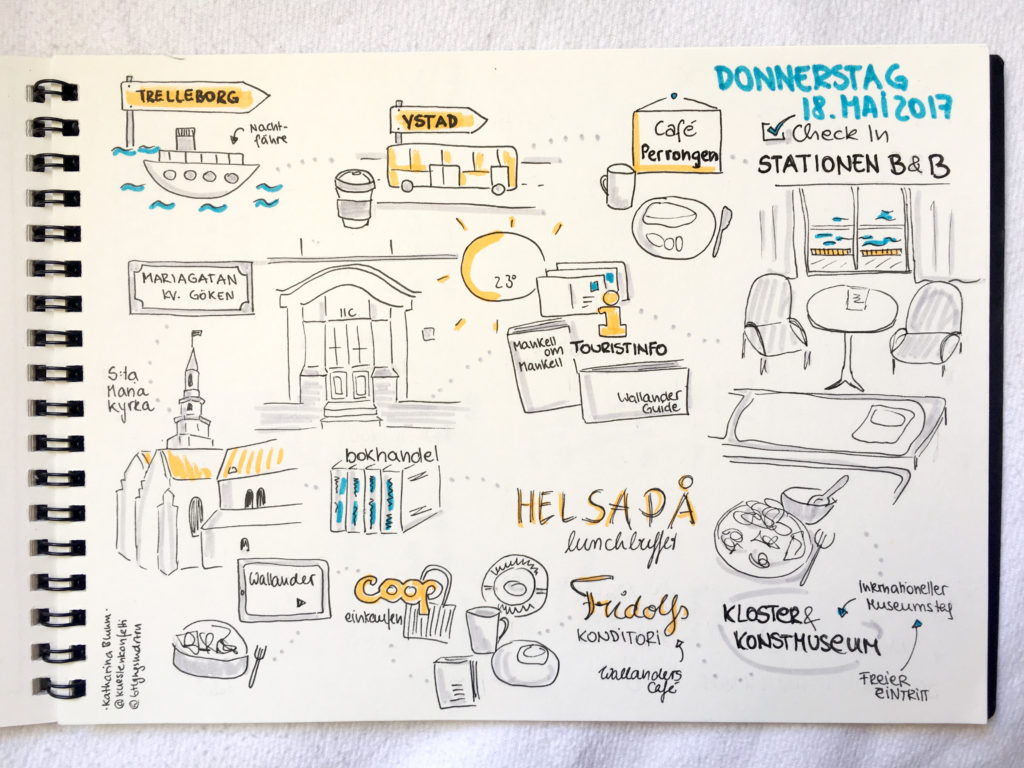 DONNERSTAG
18. MAI 2017
TRELLEBORG
Nacht-
fähre
YSTAD
Café
Perrongen
Check In
STATIONEN B&B
MARIAGATAN
KV. GÖKEN
11C
23°
Mankell
om
Mankell
i
TOURISTINFO
Wallander
Guide
S:ta
Maria
Kyrka
bokhandel
HELSA PÅ
lunchbuffet
Wallander
coop
einkaufen
Fridolfs
KONDITORI
Wallanders
Café
KLOSTER &
KONSTMUSEUM
Internationeller
Museumstag
FREIER
EINTRITT
· Katharina Bluhm ·
@kurslenkonfetti